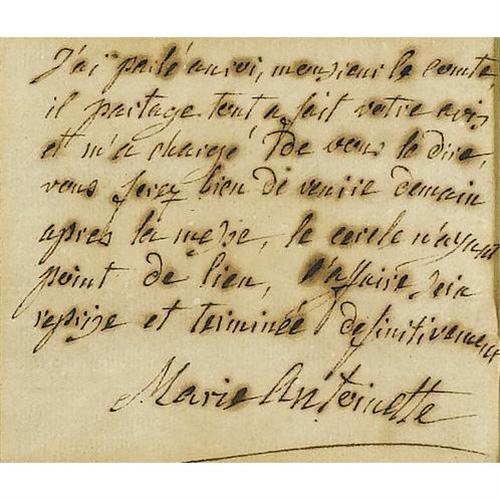 J'ai parlé au roi, monsieur le comte,
il partage tout a fait votre avis
et m'a chargé de vous le dire,
vous ferez bien de venire demain
apres la messe, le cercle n'ayant
point de lieu, l'affaire sera
reprise et terminée definitivement
Marie Antoinette